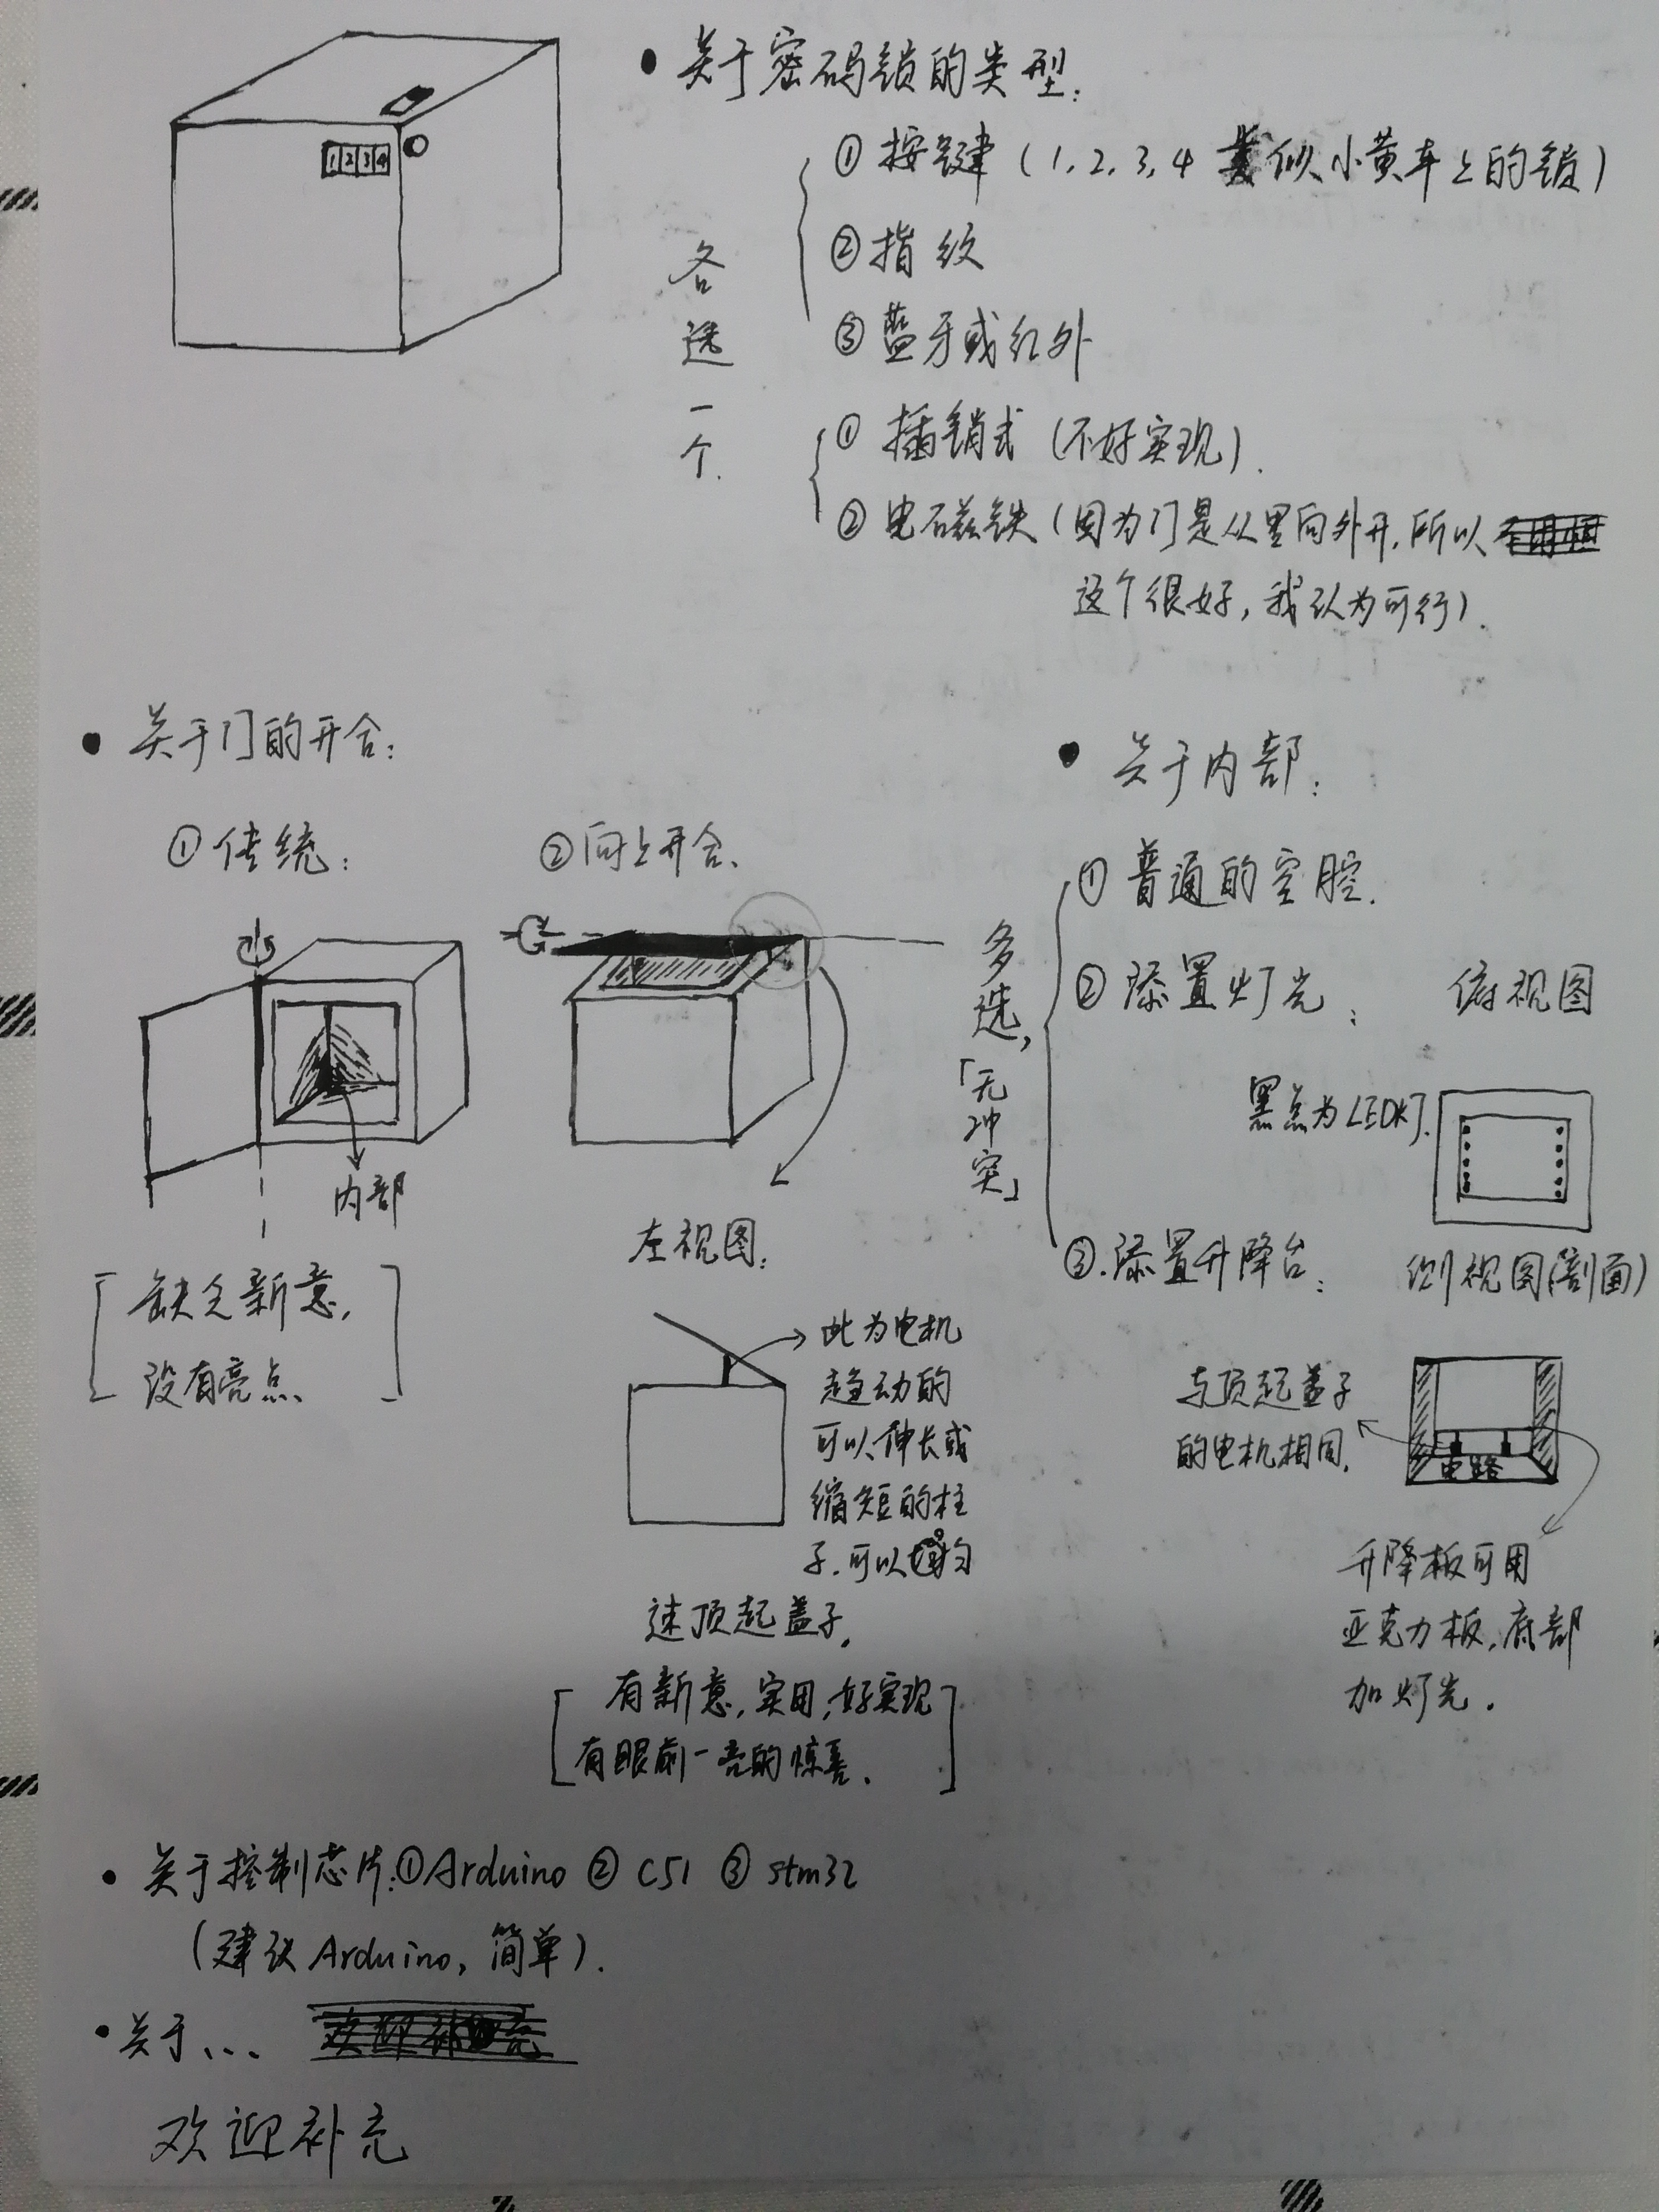 1 2 3 4
• 关于密码锁的类型:
各选一个.
① 按键 (1,2,3,4 类似小黄车上的锁)
② 指纹
③ 蓝牙或红外
① 插销式 (不好实现).
② 电磁铁 (因为门是从里向外开,所以
这个很好,我认为可行).
• 关于门的开合:
① 传统:
内部
[缺乏新意,
没有亮点、]
② 向上开合、
左视图:
此为电机
趋动的
可以伸长或
缩短的柱
子.可以匀
速顶起盖子,
[有新意,实用,好实现
有眼前一亮的惊喜.]
• 关于内部:
多选,「无冲突」
① 普通的空腔.
② 添置灯光: 俯视图
黑点为LED灯.
③.添置升降台: 侧视图(剖面)
与顶起盖子
的电机相同.
电路
升降板可用
亚克力板,底部
加灯光.
• 关于控制芯片:①Arduino ② C51 ③ stm32
(建议 Arduino, 简单).
• 关于...
欢迎补充